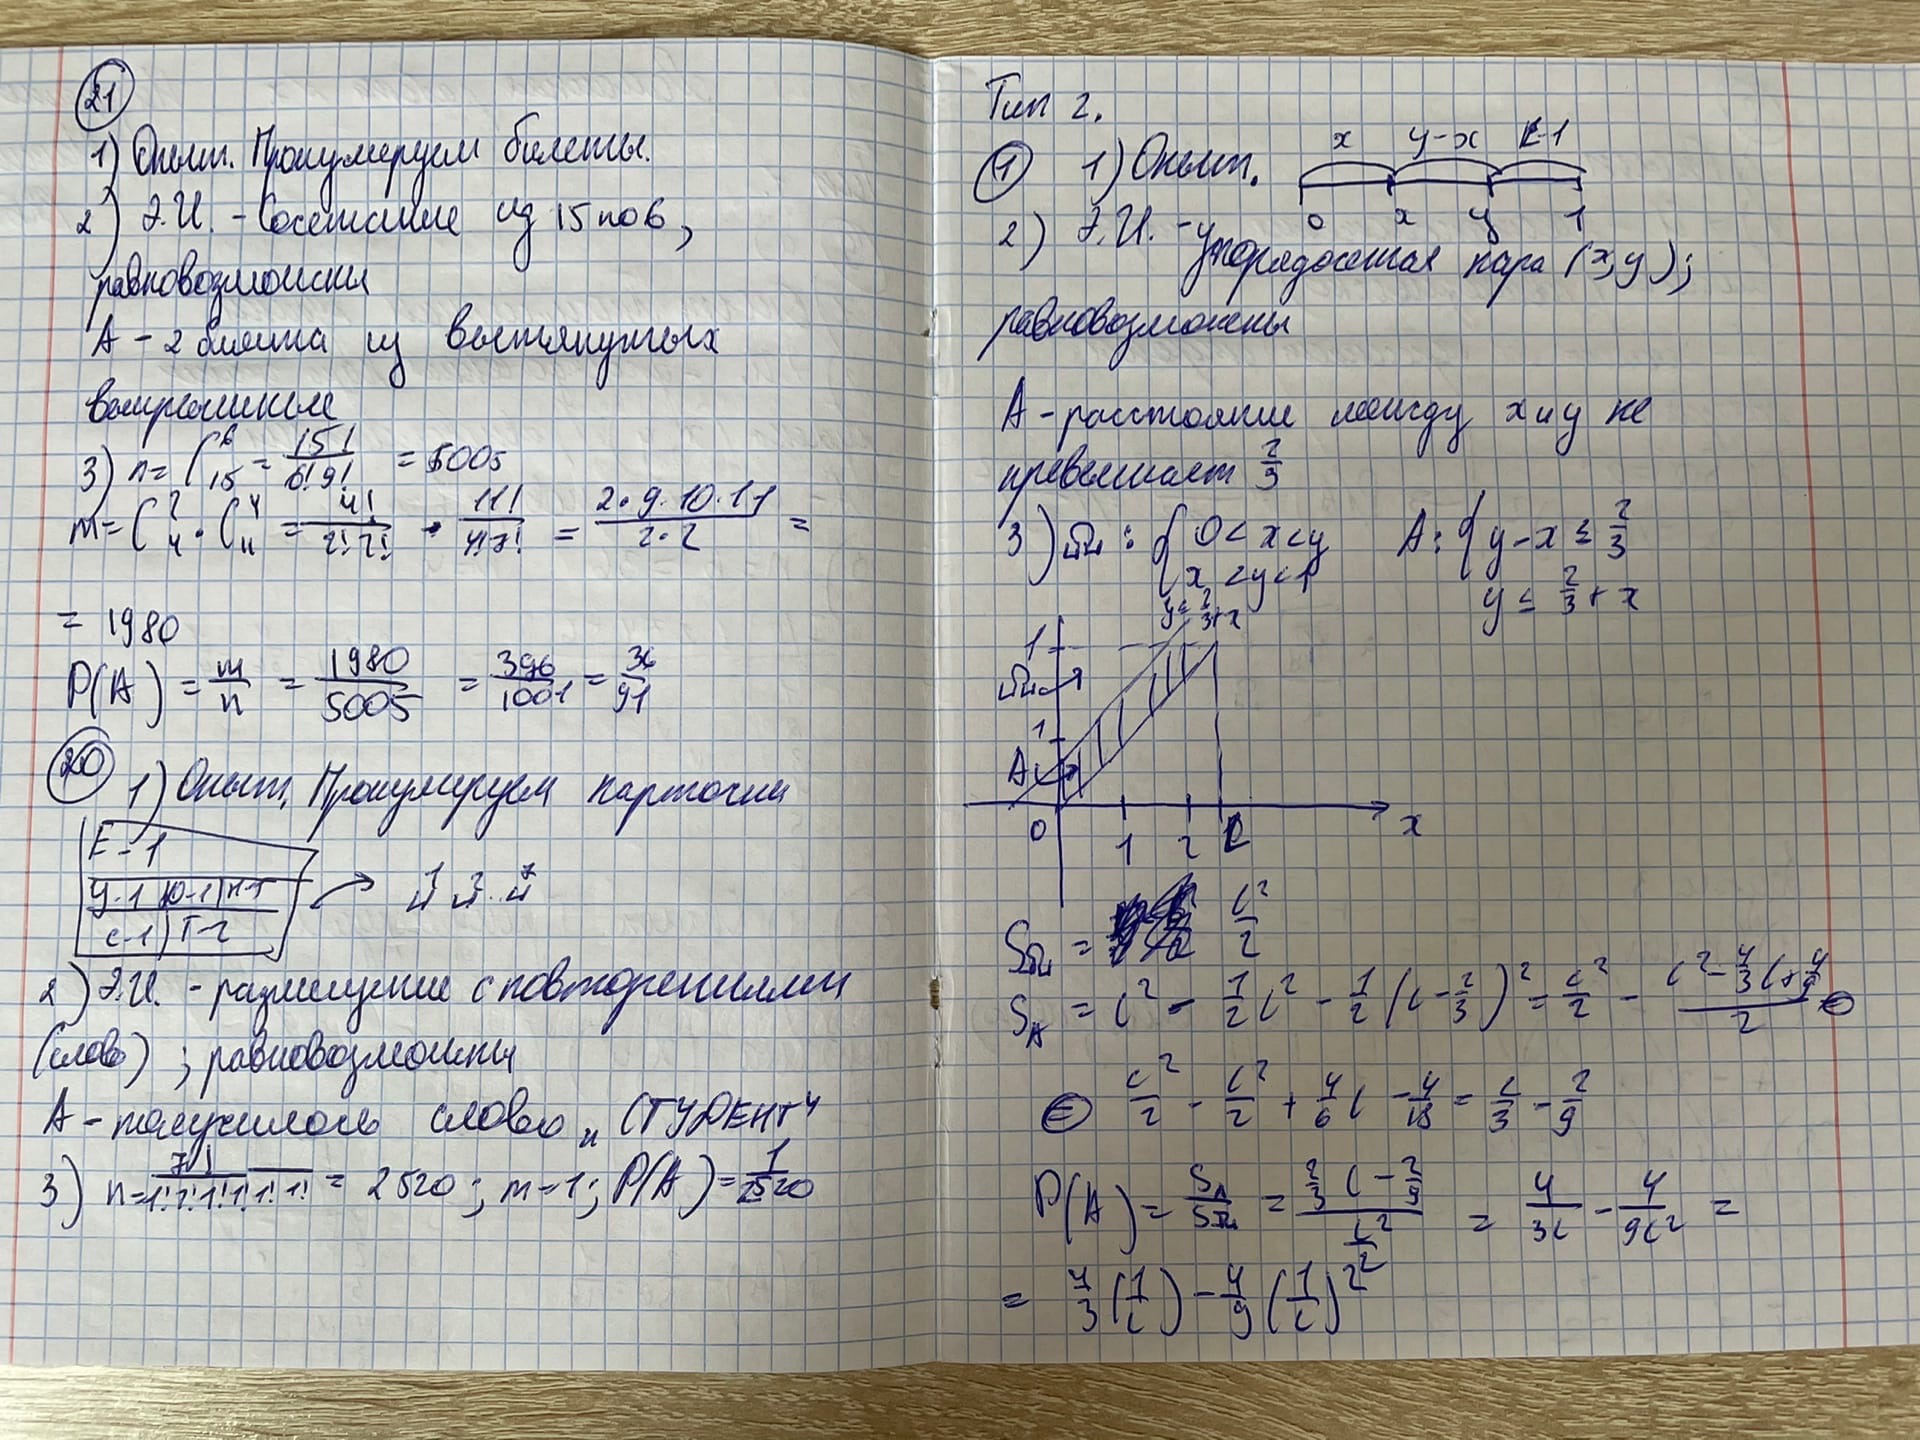 21
1) Опыт. Пронумеруем билеты.
2) Э.И. - Сочетание из 15 по 6,
равновозможны
A - 2 билета из вытянутых
выигрышные
3) n = C₁₅⁶ = 15!/(6!9!) = 5005
m = C₄² · C₁₁⁴ = 4!/(2!2!) · 11!/(4!7!) = (2·9·10·11)/(2·2) =
= 1980
P(A) = m/n = 1980/5005 = 396/1001 = 36/91
20
1) Опыт. Пронумеруем карточки
E-1
У-1 Ю-1 Н-1
С-1 Т-2
2) Э.И. - размещение с повторениями
(слово); равновозможны
A - получилось слово „СТУДЕНТ"
3) n = 7!/(1!2!1!1!1!1!) = 2520; m = 1; P(A) = 1/2520
Тип 2.
1
1) Опыт.
x y-x L-1
0 x y 1
2) Э.И. - упорядоченная пара (x,y);
равновозможны
A - расстояние между x и y не
превышает 2/3
3) Ω: { 0 < x < y
x < y < 1
A: { y - x ≤ 2/3
y ≤ 2/3 + x
y ≤ 2/3 + x
1
Ω
1
A
0 1 2 L x
S_Ω = L²/2
S_A = L² - 1/2 L² - 1/2 (L - 2/3)² = L²/2 - (L² - 4/3 L + 4/9)/2 =
= L²/2 - L²/2 + 4/6 L - 4/18 = L/3 - 2/9
P(A) = S_A/S_Ω = (2/3 L - 2/9)/(L²/2) = 4/(3L) - 4/(9L²) =
= 4/3 (1/L) - 4/9 (1/L)²